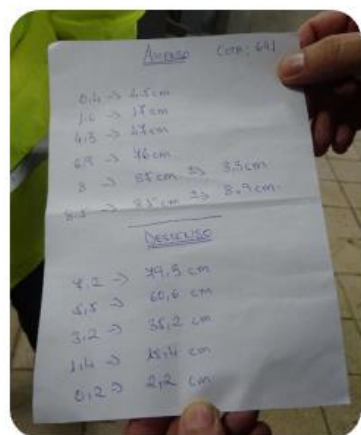 ASCENSO COTA: 641
0,4 -> 4.5cm
1.6 -> 17cm
4,5 -> 47cm
6,9 -> 76cm
8 -> 87cm => 3.5cm
8.1 -> 85cm => 8.9cm
DESCENSO
7,2 -> 79,5 cm
5,5 -> 60,6 cm
3,2 -> 35,2 cm
1,4 -> 15,4 cm
0,2 -> 2,2 cm